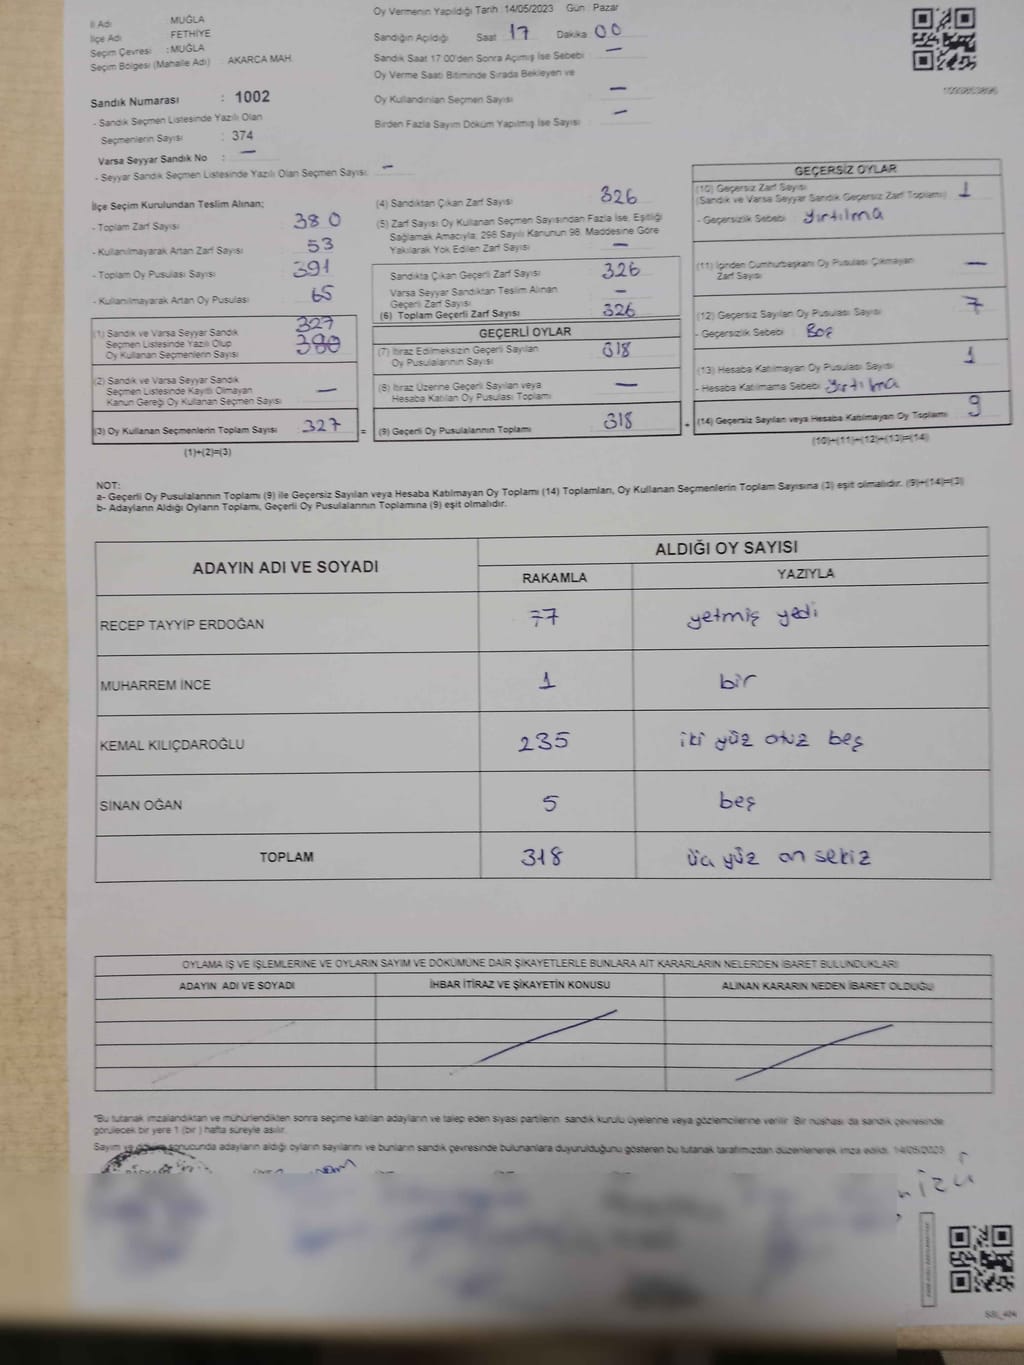 İl Adı MUĞLA
İlçe Adı FETHİYE
Seçim Çevresi : MUĞLA
Seçim Bölgesi (Mahalle Adı) AKARCA MAH.
Sandık Numarası : 1002
- Sandık Seçmen Listesinde Yazılı Olan
Seçmenlerin Sayısı : 374
Varsa Seyyar Sandık No : —
- Seyyar Sandık Seçmen Listesinde Yazılı Olan Seçmen Sayısı: —
Oy Vermenin Yapıldığı Tarih :14/05/2023 Gün : Pazar
Sandığın Açıldığı Saat 17 Dakika 00
Sandık Saat 17:00'den Sonra Açımış İse Sebebi —
Oy Verme Saati Bitiminde Sırada Bekleyen ve
Oy Kullandırılan Seçmen Sayısı —
Birden Fazla Sayım Döküm Yapılmış İse Sayısı —
İlçe Seçim Kurulundan Teslim Alınan;
- Toplam Zarf Sayısı 380
- Kullanılmayarak Artan Zarf Sayısı 53
- Toplam Oy Pusulası Sayısı 391
- Kullanılmayarak Artan Oy Pusulası 65
(1) Sandık ve Varsa Seyyar Sandık 327
Seçmen Listesinde Yazılı Olup 380
Oy Kullanan Seçmenlerin Sayısı
(2) Sandık ve Varsa Seyyar Sandık
Seçmen Listesinde Kayıtlı Olmayan —
Kanun Gereği Oy Kullanan Seçmen Sayısı
(3) Oy Kullanan Seçmenlerin Toplam Sayısı 327 =
(1)+(2)=(3)
(4) Sandıktan Çıkan Zarf Sayısı 326
(5) Zarf Sayısı Oy Kullanan Seçmen Sayısından Fazla İse, Eşitliği
Sağlamak Amacıyla, 298 Sayılı Kanunun 98. Maddesine Göre
Yakılarak Yok Edilen Zarf Sayısı —
Sandıkta Çıkan Geçerli Zarf Sayısı 326
Varsa Seyyar Sandıktan Teslim Alınan
Geçerli Zarf Sayısı —
(6) Toplam Geçerli Zarf Sayısı 326
GEÇERLİ OYLAR
(7) İtiraz Edilmeksizin Geçerli Sayılan 318
Oy Pusulalarının Sayısı
(8) İtiraz Üzerine Geçerli Sayılan veya —
Hesaba Katılan Oy Pusulası Toplamı
(9) Geçerli Oy Pusulalarının Toplamı 318 +
GEÇERSİZ OYLAR
(10) Geçersiz Zarf Sayısı 1
(Sandık ve Varsa Seyyar Sandık Geçersiz Zarf Toplamı)
- Geçersizlik Sebebi yırtılma
(11) İçinden Cumhurbaşkanı Oy Pusulası Çıkmayan —
Zarf Sayısı
(12) Geçersiz Sayılan Oy Pusulası Sayısı 7
- Geçersizlik Sebebi Boş
(13) Hesaba Katılmayan Oy Pusulası Sayısı 1
- Hesaba Katılmama Sebebi yırtılma
(14) Geçersiz Sayılan veya Hesaba Katılmayan Oy Toplamı 9
(10)+(11)+(12)+(13)=(14)
NOT:
a- Geçerli Oy Pusulalarının Toplamı (9) ile Geçersiz Sayılan veya Hesaba Katılmayan Oy Toplamı (14) Toplamları, Oy Kullanan Seçmenlerin Toplam Sayısına (3) eşit olmalıdır. (9)+(14)=(3)
b- Adayların Aldığı Oyların Toplamı, Geçerli Oy Pusulalarının Toplamına (9) eşit olmalıdır.
ADAYIN ADI VE SOYADI ALDIĞI OY SAYISI
RAKAMLA YAZIYLA
RECEP TAYYİP ERDOĞAN 77 yetmiş yedi
MUHARREM İNCE 1 bir
KEMAL KILIÇDAROĞLU 235 iki yüz otuz beş
SİNAN OĞAN 5 beş
TOPLAM 318 üç yüz on sekiz
OYLAMA İŞ VE İŞLEMLERİNE VE OYLARIN SAYIM VE DÖKÜMÜNE DAİR ŞİKAYETLERLE BUNLARA AİT KARARLARIN NELERDEN İBARET BULUNDUKLARI
ADAYIN ADI VE SOYADI İHBAR İTİRAZ VE ŞİKAYETİN KONUSU ALINAN KARARIN NEDEN İBARET OLDUĞU
"Bu tutanak imzalandıktan ve mühürlendikten sonra seçime katılan adayların ve talep eden siyasi partilerin sandık kurulu üyelerine veya gözlemcilerine verilir. Bir nüshası da sandık çevresinde
görülecek bir yere 1 (bir) hafta süreyle asılır.
Sayım ve döküm sonucunda adayların aldığı oyların sayılarını ve bunların sandık çevresinde bulunanlara duyurulduğunu gösteren bu tutanak tarafımızdan düzenlenerek imza edildi. 14/05/2023